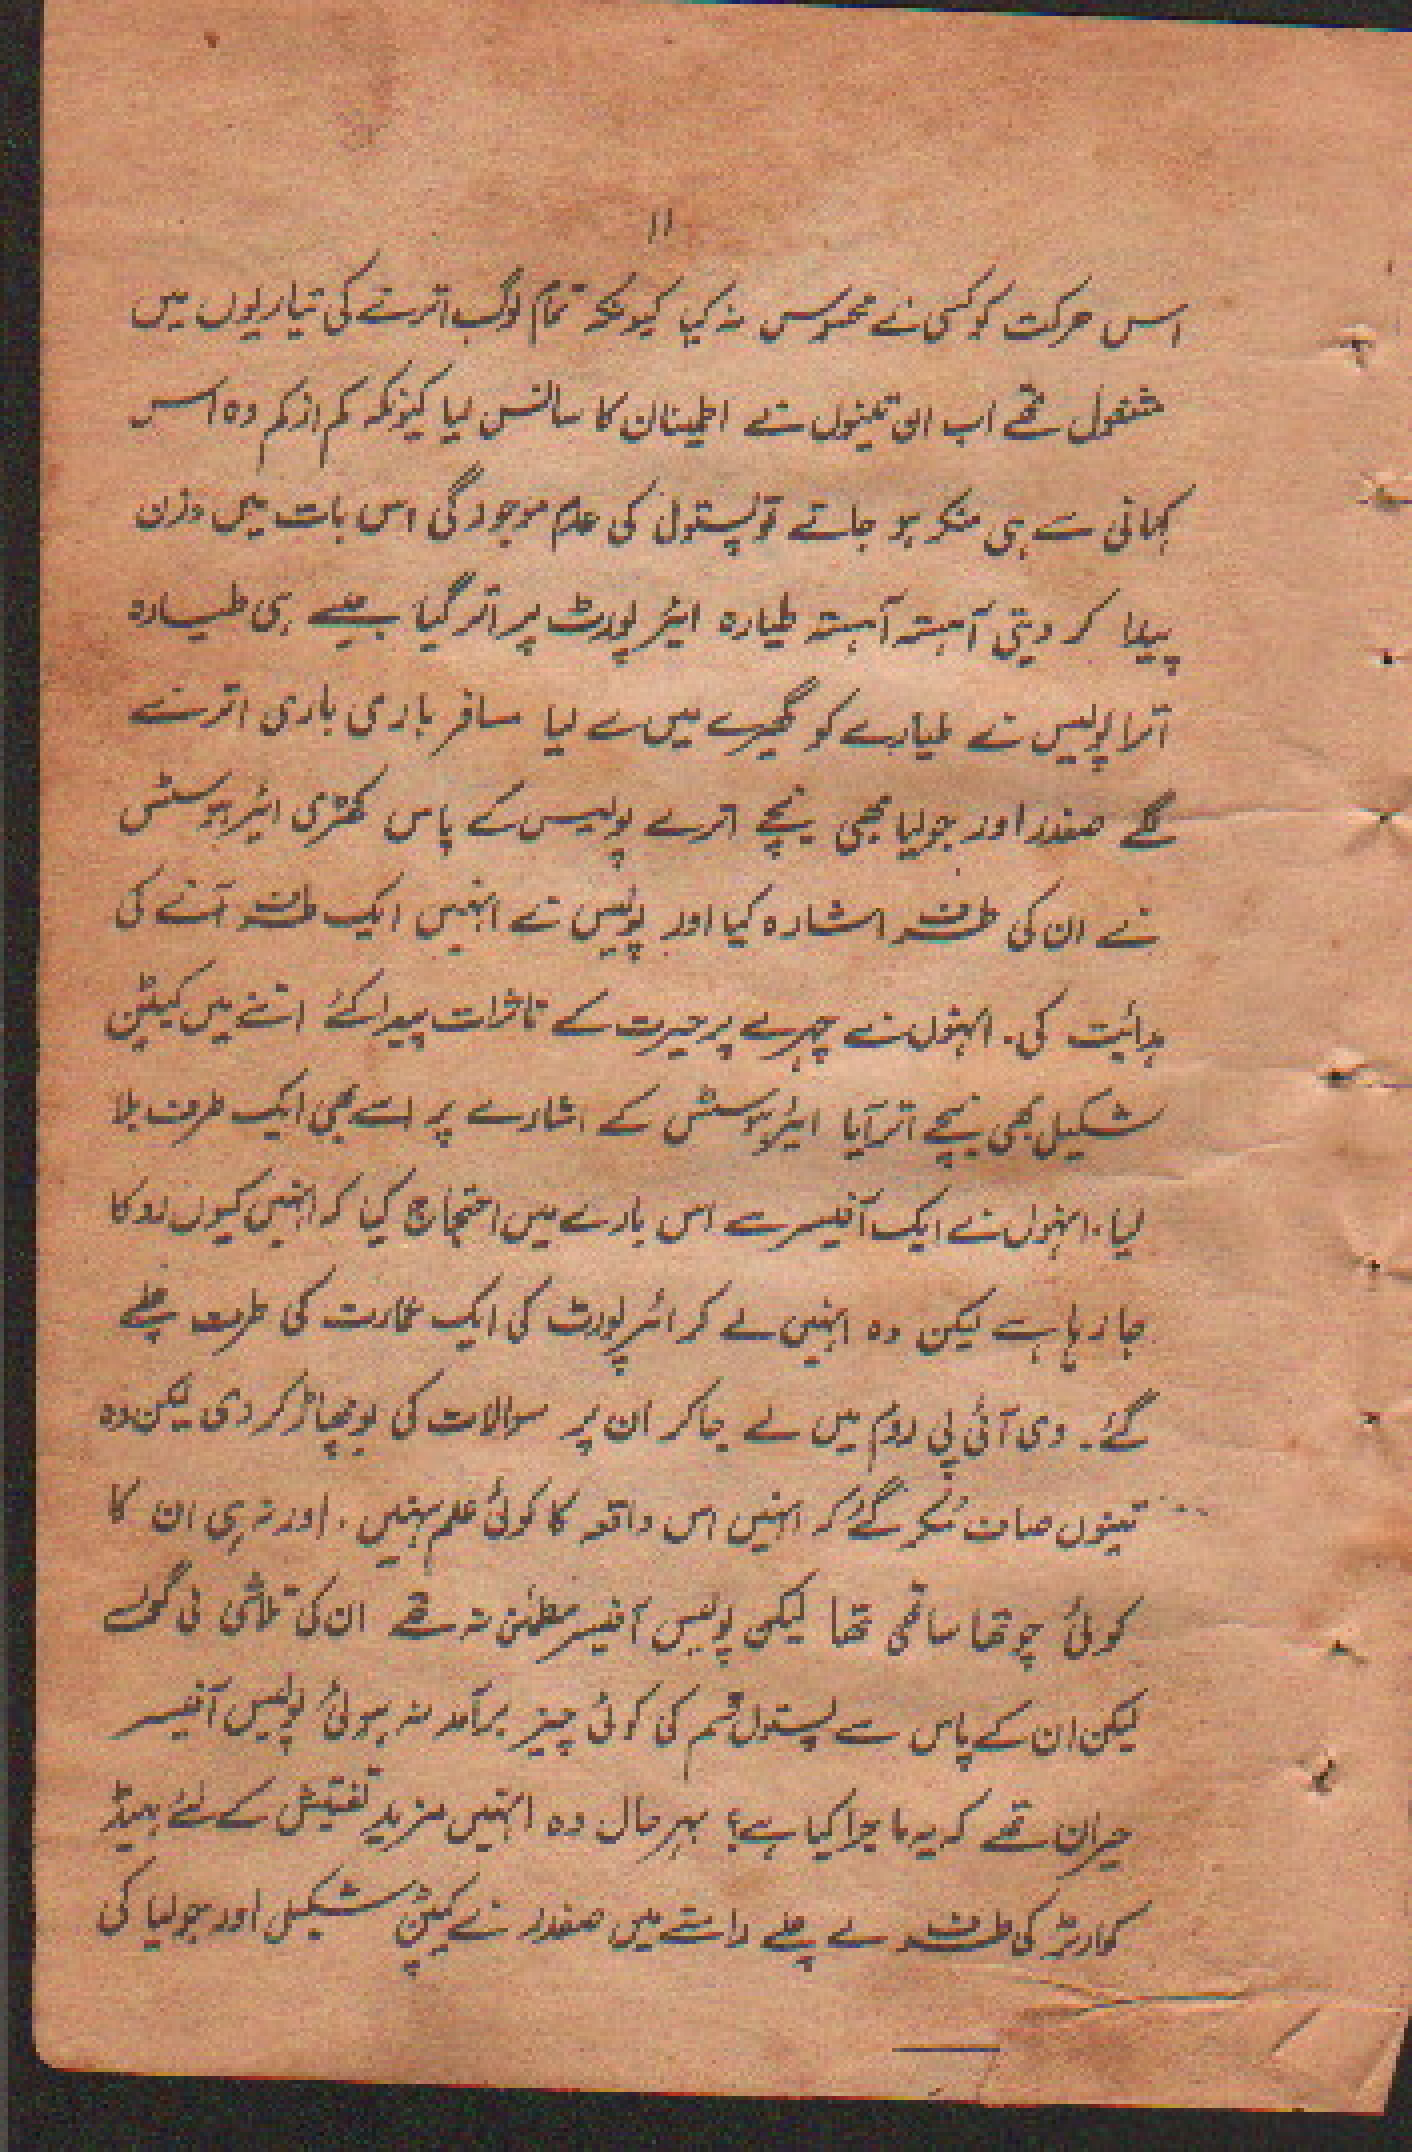 ۱۱
اس حرکت کو کسی نے محسوس نہ کیا کیونکہ تمام لوگ اترنے کی تیاریوں میں
مشغول تھے اب ان تینوں نے اطمینان کا سانس لیا کیونکہ کم از کم وہ اس
کہانی سے ہی منکر ہو جاتے تو پستول کی عدم موجودگی اس بات میں وزن
پیدا کر دیتی آہستہ آہستہ طیارہ ایئر پورٹ پر اتر گیا جیسے ہی طیارہ
اترا پولیس نے طیارے کو گھیرے میں لے لیا مسافر باری باری اترنے
لگے صفدر اور جولیا بھی نیچے اترے پولیس کے پاس کھڑی ایئر ہوسٹس
نے ان کی طرف اشارہ کیا اور پولیس نے انہیں ایک طرف آنے کی
ہدائیت کی۔ انہوں نے چہرے پر حیرت کے تاثرات پیدا کئے اتنے میں کیپٹن
شکیل بھی نیچے اتر آیا ایئر ہوسٹس کے اشارے پر اسے بھی ایک طرف بلا
لیا۔ انہوں نے ایک آفیسر سے اس بارے میں احتجاج کیا کہ انہیں کیوں روکا
جا رہا ہے لیکن وہ انہیں لے کر ائر پورٹ کی ایک عمارت کی طرف چلے
گئے۔ وی آئی پی روم میں لے جا کر ان پر سوالات کی بوچھاڑ کر دی لیکن وہ
تینوں صاف مکر گئے کہ انہیں اس واقعہ کا کوئی علم نہیں۔ اور نہ ہی ان کا
کوئی چوتھا ساتھی تھا لیکن پولیس آفیسر مطمئن نہ تھے ان کی تلاشی لی گئی
لیکن ان کے پاس سے پستول قسم کی کوئی چیز برآمد نہ ہوئی پولیس آفیسر
حیران تھے کہ یہ ماجرا کیا ہے؟ بہرحال وہ انہیں مزید تفتیش کے لئے ہیڈ
کوارٹر کی طرف لے چلے راستے میں صفدر نے کیپٹن شکیل اور جولیا کی